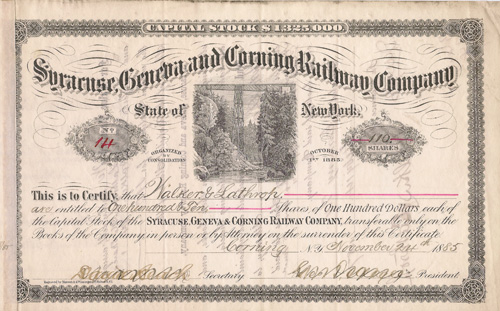 CAPITAL STOCK $1,325,000.
Syracuse, Geneva and Corning Railway Company
State of New York.
No 14
ORGANIZED BY CONSOLIDATION
OCTOBER 1ST 1885
110 SHARES
This is to Certify, that Walker & Lathrop
are entitled to One Hundred & Ten Shares of One Hundred Dollars each of
the Capital Stock of the SYRACUSE, GENEVA & CORNING RAILWAY COMPANY, transferable only on the
Books of the Company in person or by Attorney on the surrender of this Certificate
Corning N.Y. November 24th 1885
Secretary
President